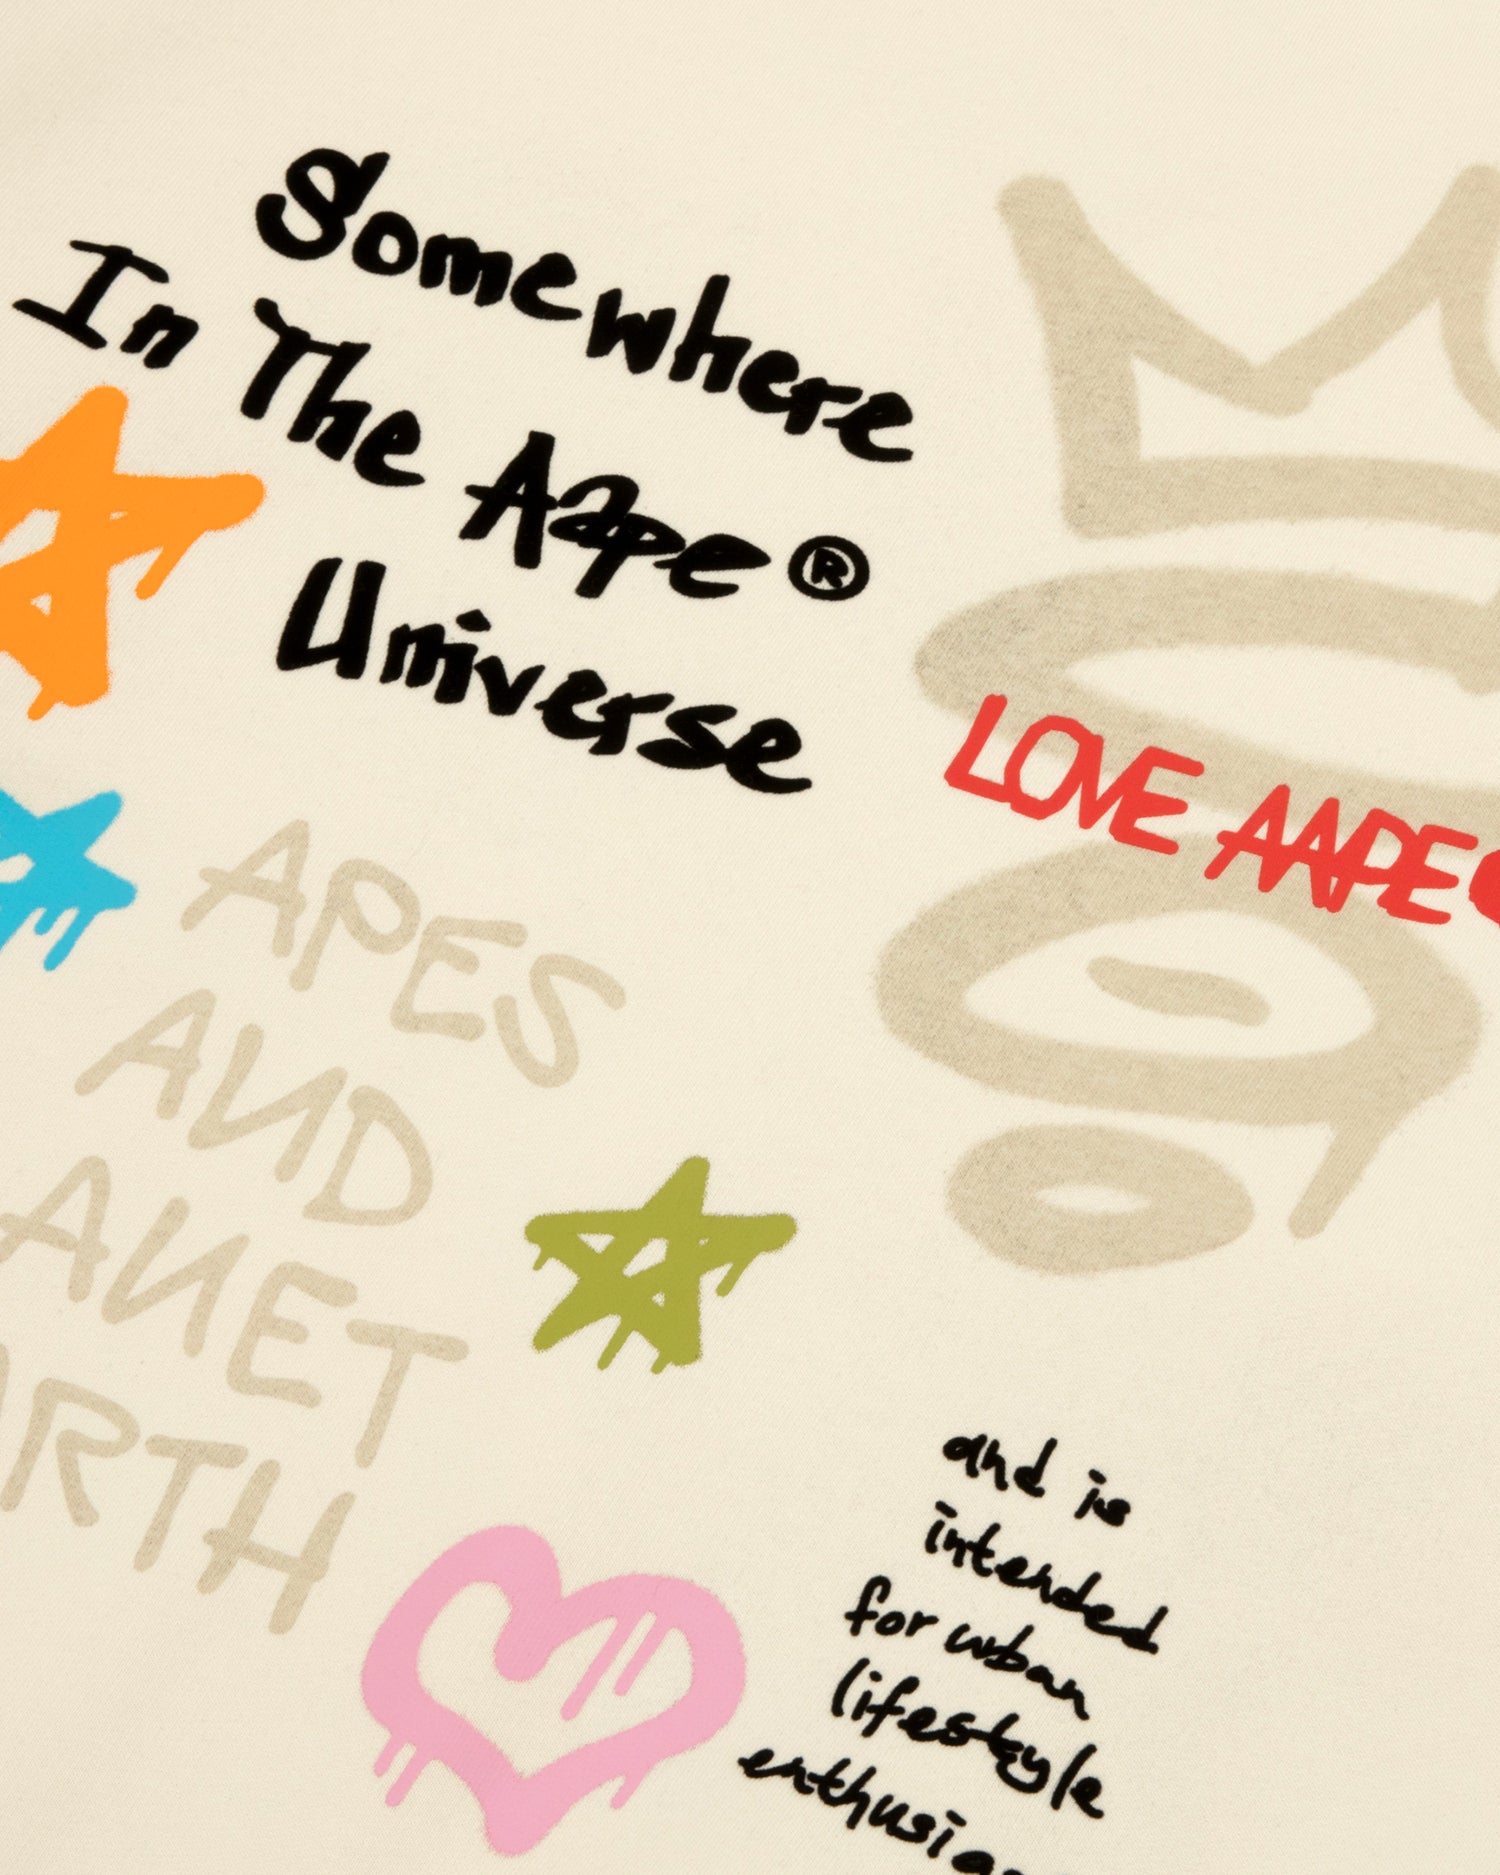 Somewhere
In The Aape®
Universe
LOVE AAPE
APES
AND
ANET
RTH
and is
intended
for urban
lifestyle
enthusia